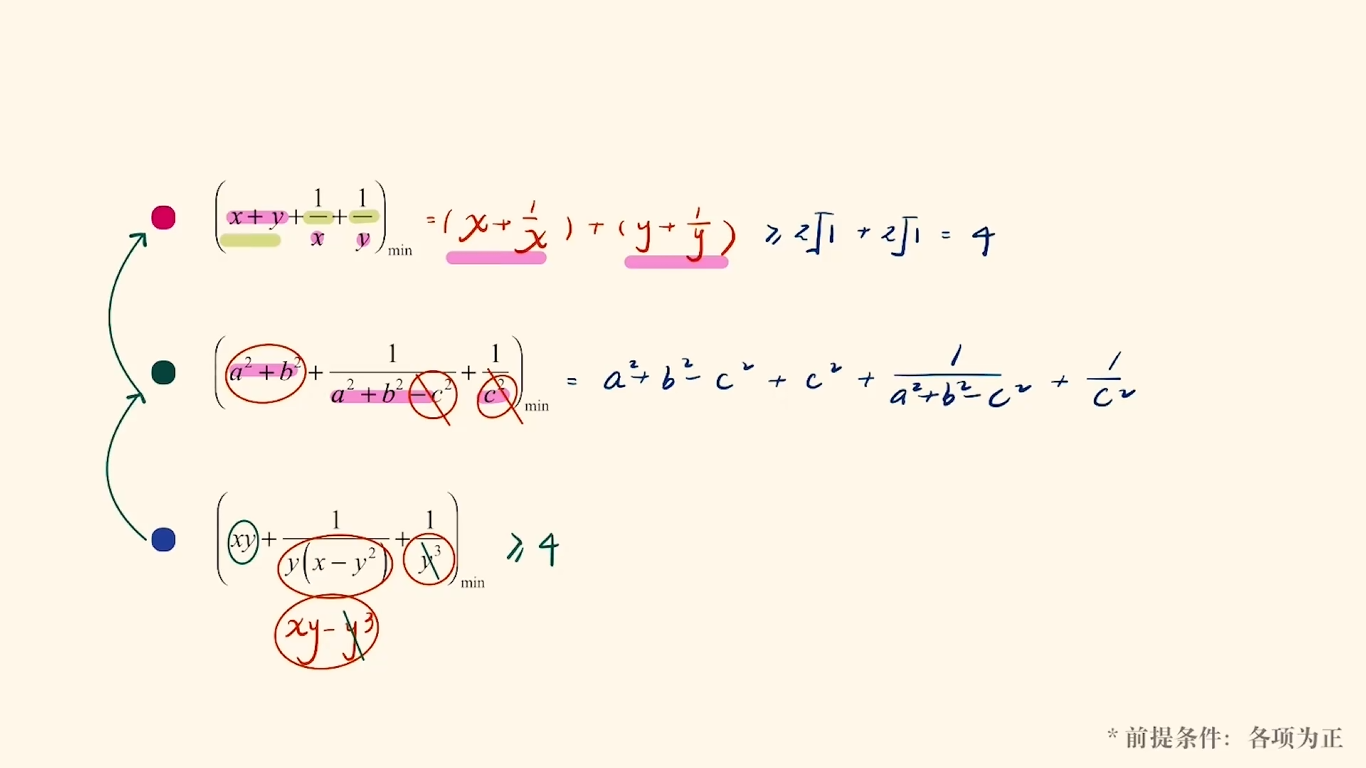 (x + y + 1/x + 1/y)min = (x + 1/x) + (y + 1/y) ≥ 2√1 + 2√1 = 4
(a² + b² + 1/(a² + b² − c²) + 1/c²)min = a² + b² − c² + c² + 1/(a² + b² − c²) + 1/c²
(xy + 1/(y(x − y²)) + 1/y³)min ≥ 4
xy − y³
* 前提条件：各项为正